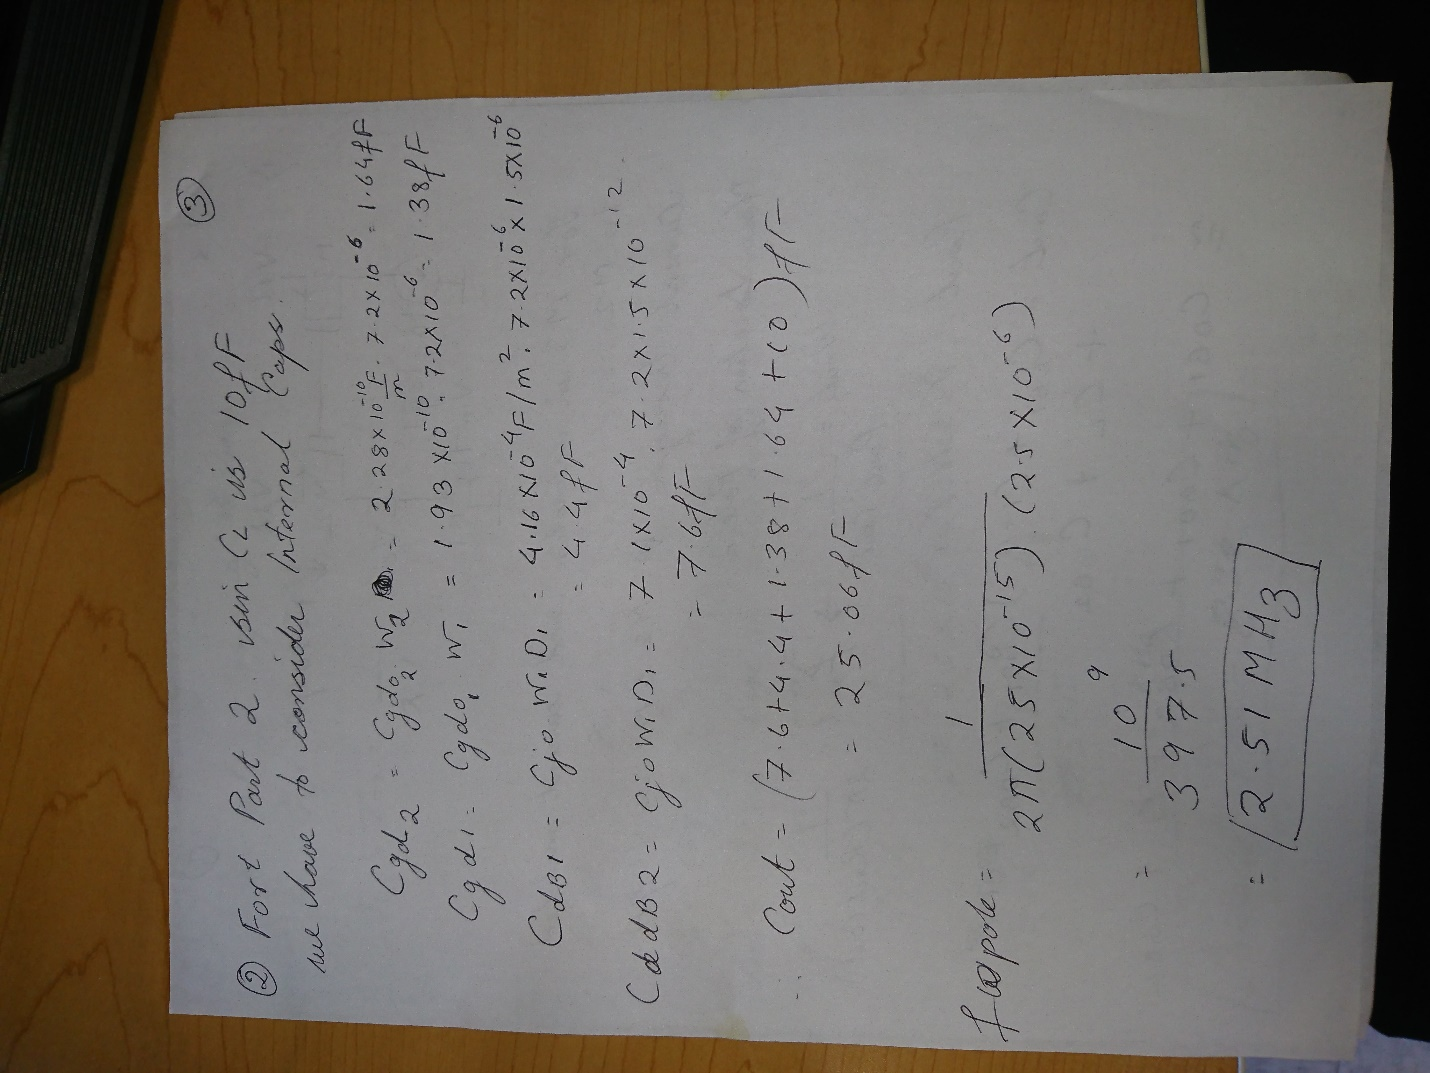 ③
② For Part 2. usin CL is 10fF
we have to consider Internal Caps.
Cgd2 = Cgdo2 W2 = 2.28x10^-10 F/m . 7.2x10^-6 = 1.64fF
Cgd1 = Cgdo1 . W1 = 1.93 x10^-10 . 7.2x10^-6 = 1.38fF
CdB1 = Cjo W1D1 = 4.16x10^-4 F/m^2 . 7.2x10^-6 x 1.5x10^-6
= 4.4fF
CddB2 = CjoW1D1 = 7.1x10^-4 . 7.2x1.5x10^-12 .
= 7.6fF
∴ Cout = (7.6+4.4+1.38+1.64+10)fF
= 25.06fF
fpole = 1 / 2π(25x10^-15).(2.5x10^-6)
= 10^9 / 397.5
= 2.51 MHz